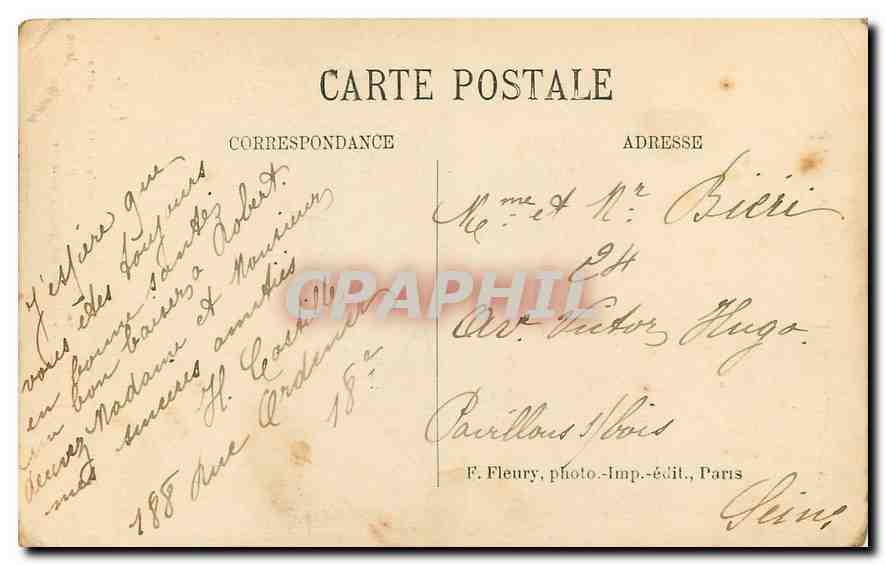 CARTE POSTALE
CORRESPONDANCE
ADRESSE
J'espère que
vous êtes toujours
en bonne santé;
un bon baiser à Robert.
Recevez Madame et Monsieur
mes sincères amitiés
H.
188 Rue Ordener
18e
Mme et Mr Biéri
24
Av. Victor Hugo.
Pavillons s/bois
Seine
F. Fleury, photo.-Imp.-édit., Paris
CPAPHIL